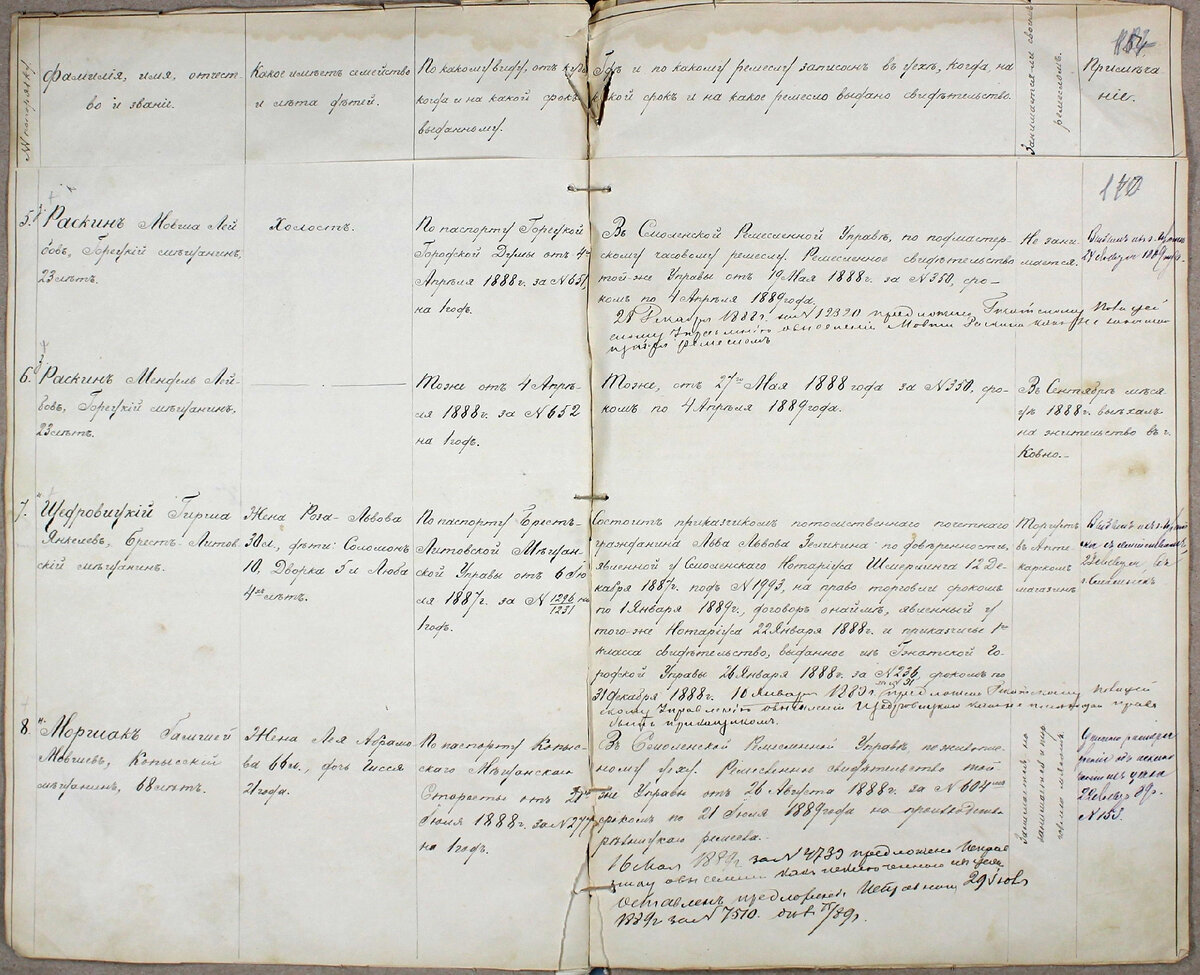 №№ по порядку
Фамилія, имя, отчест-
во и званіе.
Какое имѣетъ семейство
и лѣта дѣтей.
По какому виду, отъ кого
когда и на какой срокъ
выданному.
Гдѣ и по какому ремеслу записанъ въ цехъ, когда, на
какой срок и на какое ремесло выдано свидѣтельство.
Занимается ли своимъ
ремесломъ.
Примѣча-
ніе.
5. Раскинъ Мовша Лей-
бовъ, Горецкій мѣщанинъ,
23 лѣтъ.
Холостъ.
По паспорту Горецкой
Городской Думы отъ 4го
Апрѣля 1888 г. за № 651,
на 1 годъ.
Въ Смоленской Ремесленной Управѣ, по подмастер-
скому часовому ремеслу. Ремесленное свидѣтельство
той же Управы отъ 19 Мая 1888 г. за № 350, сро-
комъ по 4 Апрѣля 1889 года.
28 Декабря 1888 г. за № 12320 предложено Гжатскому Полицей
скому Управленію о выселеніи Мовши Раскина
ремесломъ
Не зани-
мается.
6. Раскинъ Мендель Лей-
бовъ, Горецкій мѣщанинъ,
23 лѣтъ.
Тоже отъ 4 Апрѣ-
ля 1888 г. за № 652
на 1 годъ.
Тоже, отъ 27го Мая 1888 года за № 350, сро-
комъ по 4 Апрѣля 1889 года.
Въ Сентябрѣ мѣся-
цѣ 1888 г. выѣхалъ
на жительство въ г.
Ковно.
7. Щедровицкій Гирша
Янкелевъ, Брестъ-Литов
скій мѣщанинъ.
Жена Роза-Львова
30 л., дѣти: Соломонъ
10, Дворка 5 и Люба
4хъ лѣтъ.
По паспорту Брестъ-
Литовской Мѣщан-
ской Управы отъ 6 Ію-
ля 1887 г. за № 1296/1231 на
1 годъ.
Состоитъ приказчикомъ потомственнаго почетнаго
гражданина Льва Львова Зеликина по довѣренности,
явленной у Смоленскаго Нотаріуса Шмерлинга 12 Де-
кабря 1887 г. подъ № 1993, на право торговли срокомъ
по 1 Января 1889 г., договоръ о наймѣ, явленный у
того-же Нотаріуса 22 Января 1888 г. и приказчичье 1го
класса свидѣтельство, выданное изъ Гжатской Го-
родской Управы 26 Января 1888 г. за № 236, срокомъ по
31 Декабря 1888 г. 10 Января 1889 г. за № 31 предложено Гжатскому Полицей
скому Управленію о выселеніи Щедровицкаго какъ не имѣющаго права
быть приказчикомъ.
Торгуетъ
въ Апте-
карскомъ
магазинѣ
8. Моргнак Гамшей
Мовшевъ, Копысскій
мѣщанинъ, 68 лѣтъ.
Жена Лея Абрамо-
ва 66 л., дочь Гисся
21 года.
По паспорту Копыс-
скаго Мѣщанскаго
Старосты отъ 21го
Іюля 1888 г. за № 277
на 1 годъ.
Въ Смоленской Ремесленной Управѣ
ному цеху. Ремесленное свидѣтельство той
же Управы отъ 26 Августа 1888 г. за № 604
срокомъ по 21 Іюля 1889 года на производство
рѣзницкаго ремесла.
16 Мая 1889 г. за № 4739 предложено Исправ
нику о выселеніи
оставленъ предложеніемъ Исправнику 29 Іюля
1889 г. за № 7510.
№ 153.